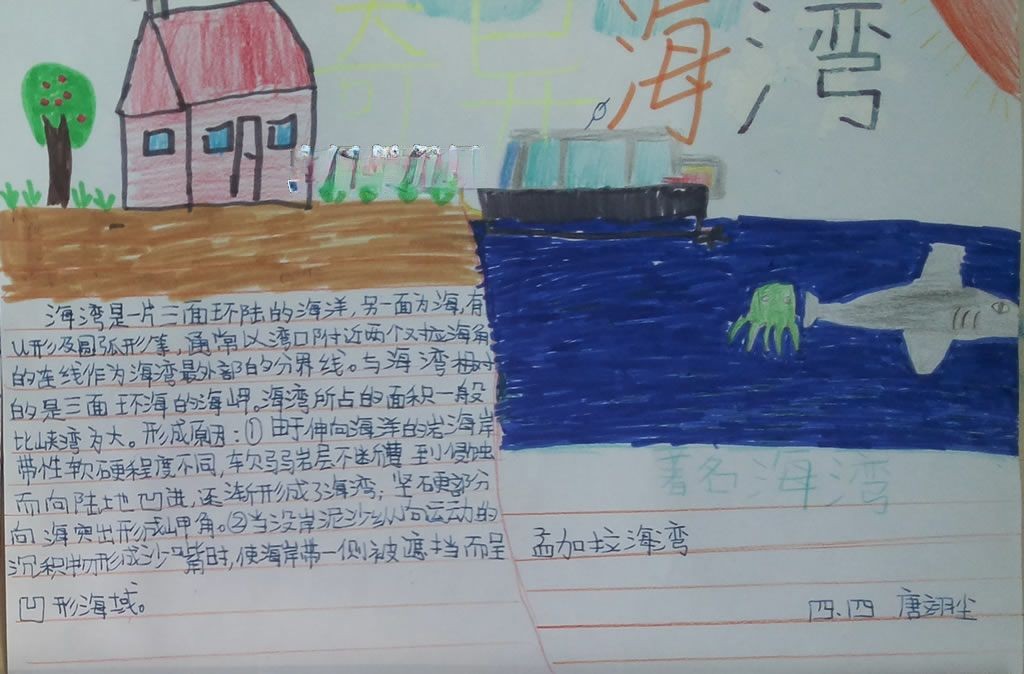 奇异海湾
海湾是一片三面环陆的海洋,另一面为海,有
U形及圆弧形等,通常以湾口附近两个对应海角
的连线作为海湾最外部的分界线。与海湾相对
的是三面环海的海岬。海湾所占的面积一般
比峡湾为大。形成原因:①由于伸向海洋的岩海岸
带性软硬程度不同,软弱岩层不断遭到侵蚀
而向陆地凹进,逐渐形成了海湾;坚硬部分
向海突出形成岬角。②当沿岸泥沙纵向运动的
沉积物形成沙嘴时,使海岸带一侧被遮挡而呈
凹形海域。
著名海湾
孟加拉海湾
四.四 唐翊尘